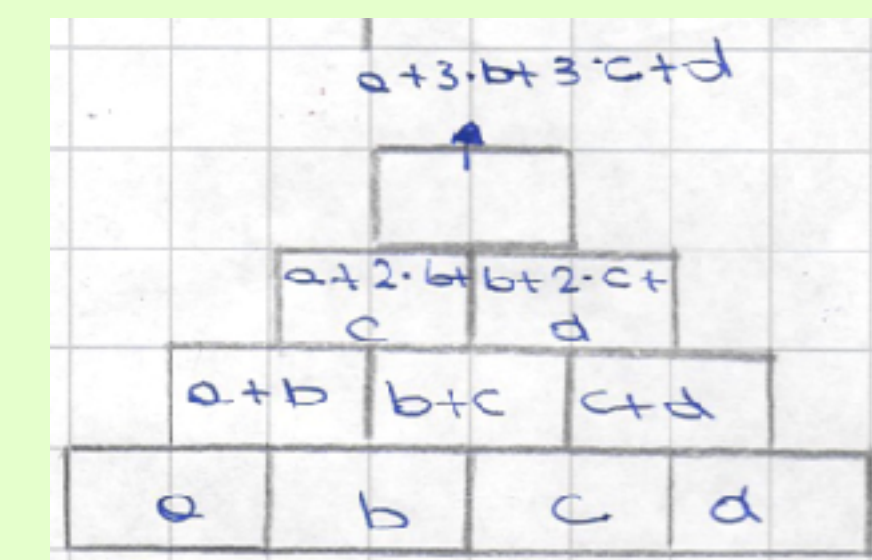 a+3·b+3·c+d
a+2·b+ b+2·c+
c d
a+b b+c c+d
a b c d